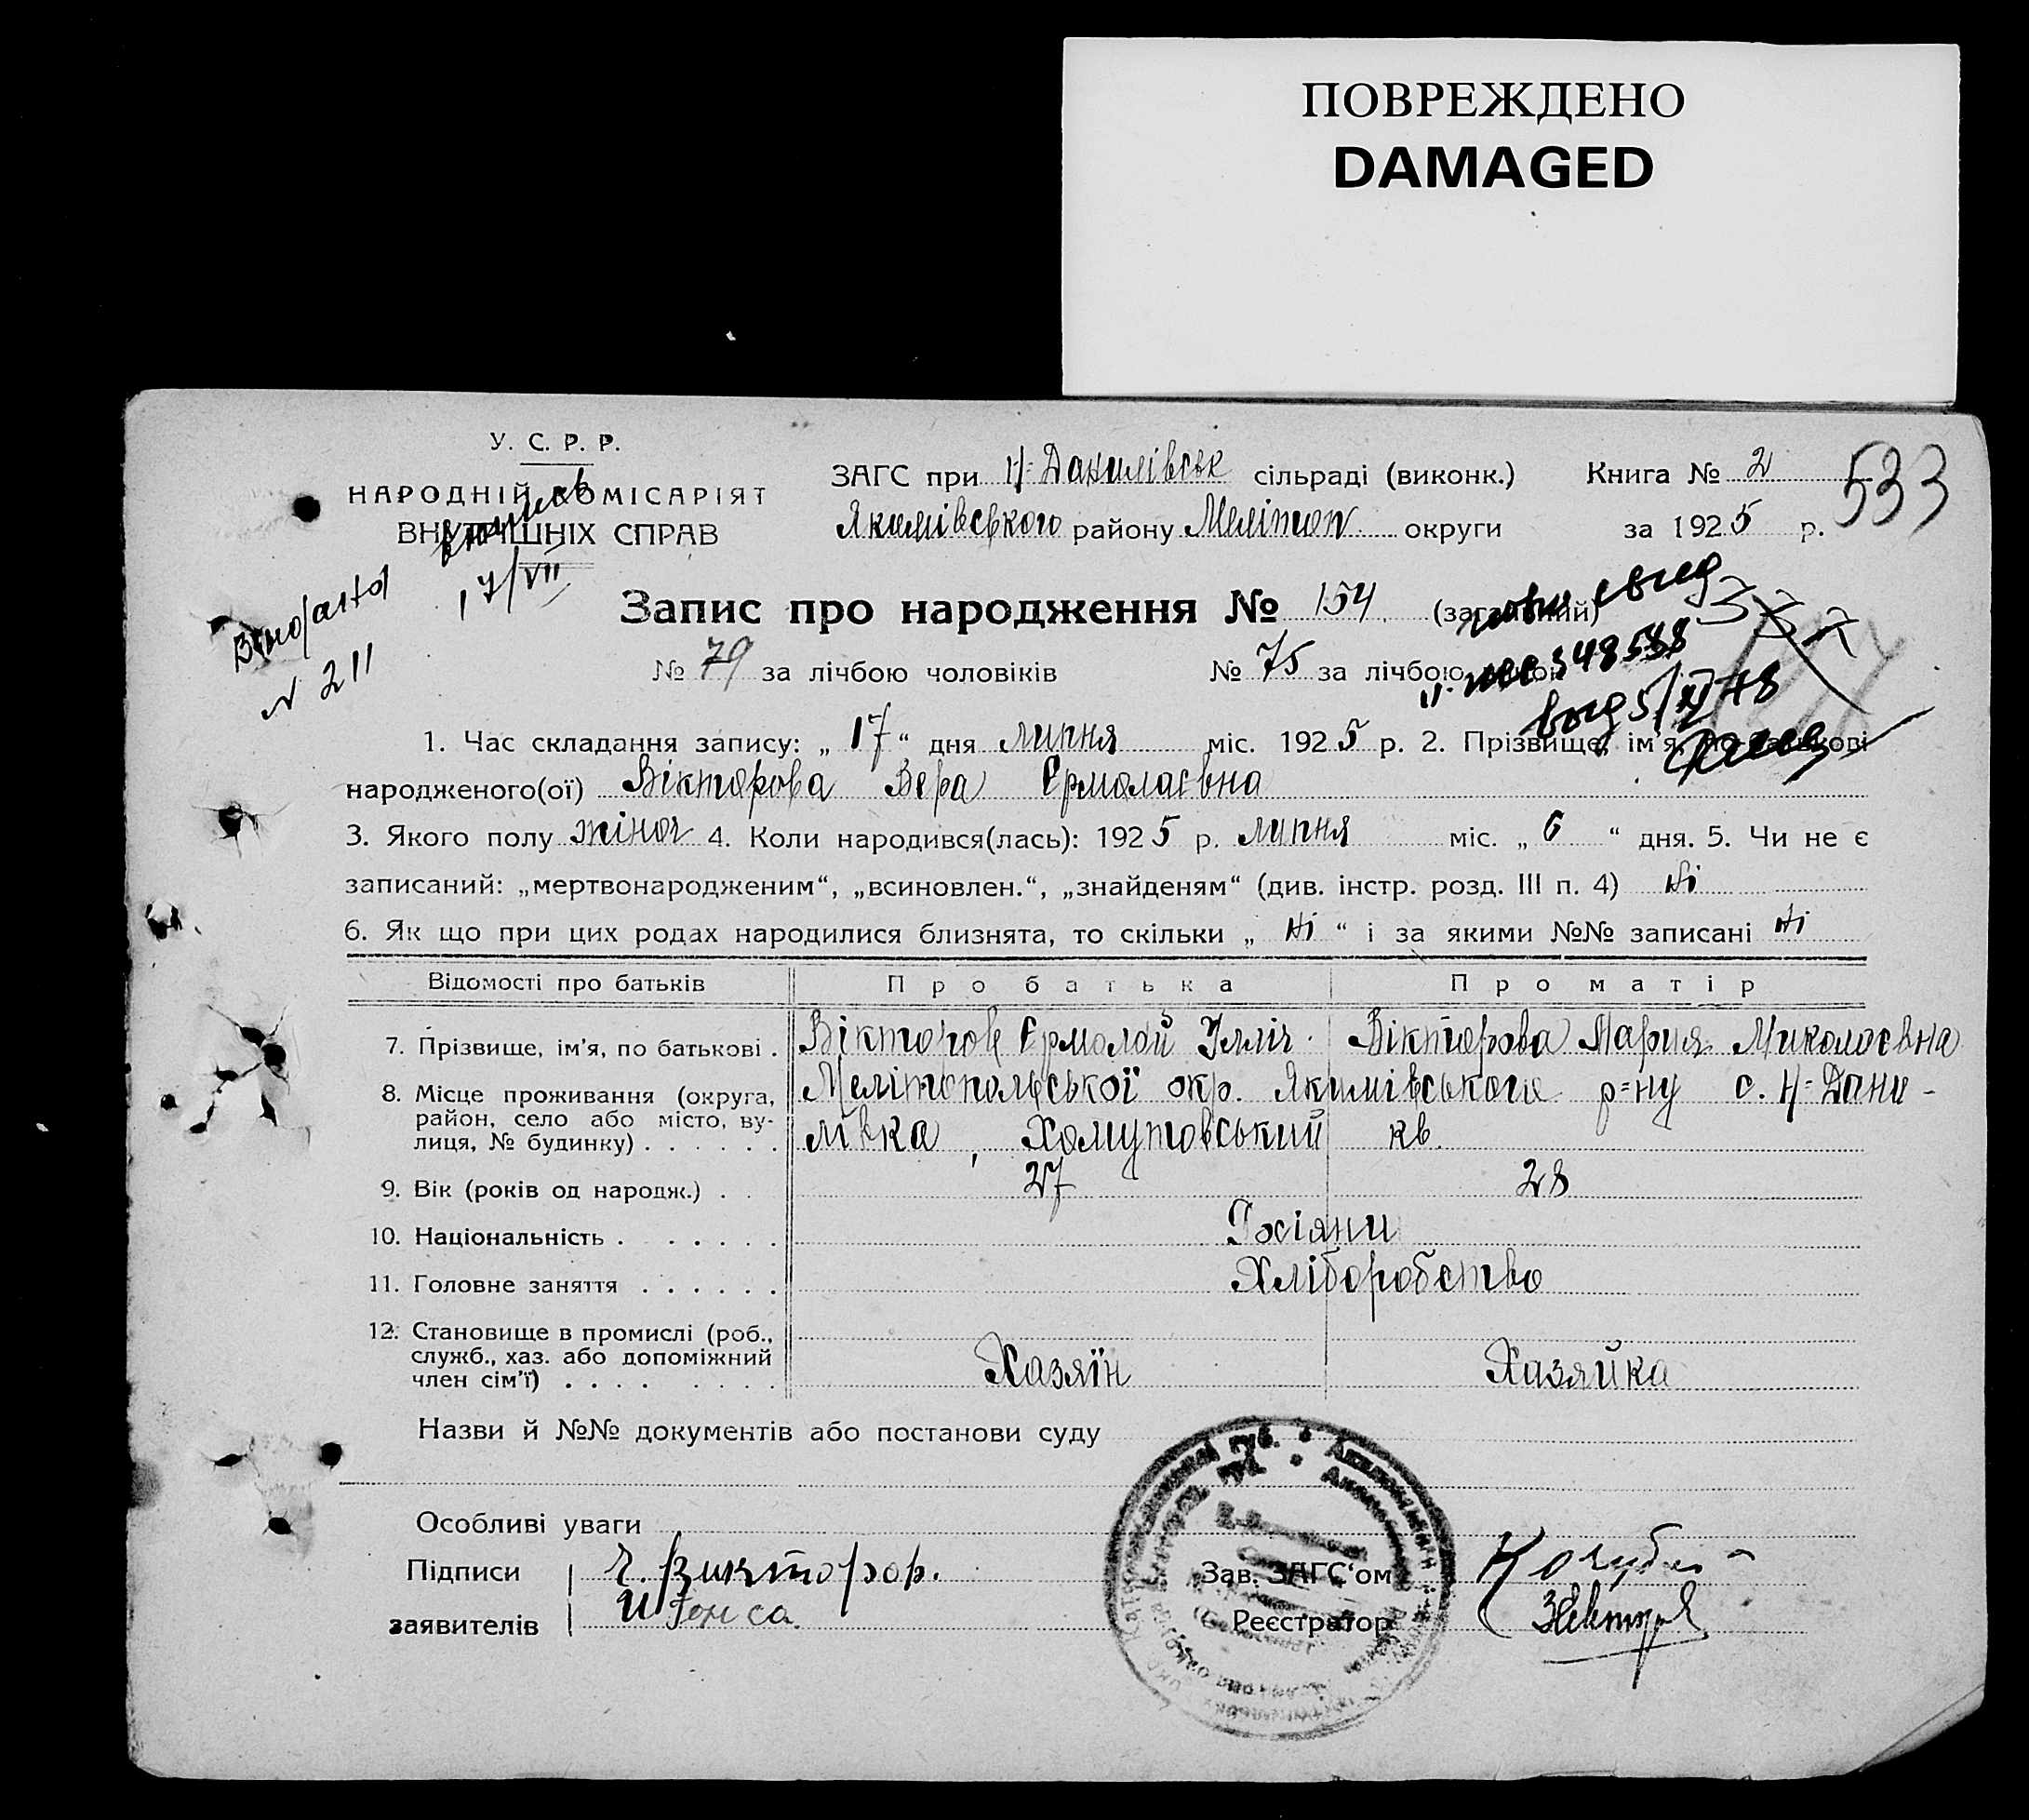 ПОВРЕЖДЕНО
DAMAGED
У. С. Р. Р.
НАРОДНІЙ КОМІСАРІЯТ
ВНУТРІШНІХ СПРАВ
17/VII
№ 211
ЗАГС при Н-Данилівськ сільраді (виконк.) Книга № 2
533
Якимівського району Меліτοп округи за 1925 р.
Запис про народження № 154 (загальний)
№ 79 за лічбою чоловіків № 75 за лічбою жінок
348538
выд 5/XI 78
1. Час складання запису: „ 17 “ дня липня міс. 1925 р. 2. Прізвище, ім'я, по батькові
народженого(ої) Вікторова Вера Єрмолаєвна
3. Якого полу жіноч 4. Коли народився(лась): 1925 р. липня міс. „ 6 “ дня. 5. Чи не є
записаний: „мертвонародженим“, „всиновлен.“, „знайденям“ (див. інстр. розд. III п. 4) Ні
6. Як що при цих родах народилися близнята, то скільки „ Ні “ і за якими №№ записані Ні
Відомості про батьків Про батька Про матір
7. Прізвище, ім'я, по батькові . Вікторов Єрмолай Ілліч. Вікторова Мария Миколаєвна
8. Місце проживання (округа, район, село або місто, вулиця, № будинку) . . . . . . Мелітопольської окр. Якимівського р=ну с. Н=Дани-
лівка, Хомутовський кв.
9. Вік (років од народж.) . . 27 28
10. Національність . . . . . . . Росіяни
11. Головне заняття . . . . . . Хліборобство
12. Становище в промислі (роб.,
служб., хаз. або допоміжний
член сім'ї) . . . . . . . . Хазяїн Хазяйка
Назви й №№ документів або постанови суду
Особливі уваги
Підписи Є. Викторов.
заявителів
Зав. ЗАГС'ом Кочубей
Реєстратор